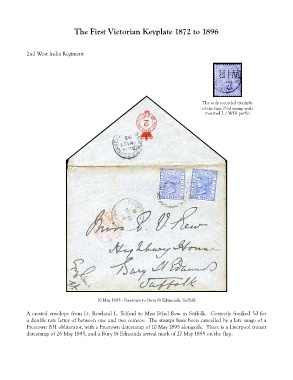 The First Victorian Keyplate 1872 to 1896
2nd West India Regiment
The only recorded example
of the first 2½d stamp with
inverted 2 / WIR perfin
Miss E. O. Rew
Highbury House
Bury St Edmunds
Suffolk
10 May 1895 - Freetown to Bury St Edmunds, Suffolk
A crested envelope from Lt. Rowland L. Telford to Miss Ethel Rew in Suffolk. Correctly franked 5d for
a double rate letter of between one and two ounces. The stamps have been cancelled by a late usage of a
Freetown B31 obliterator, with a Freetown datestamp of 10 May 1895 alongside. There is a Liverpool transit
datestamp of 26 May 1895, and a Bury St Edmunds arrival mark of 27 May 1895 on the flap.